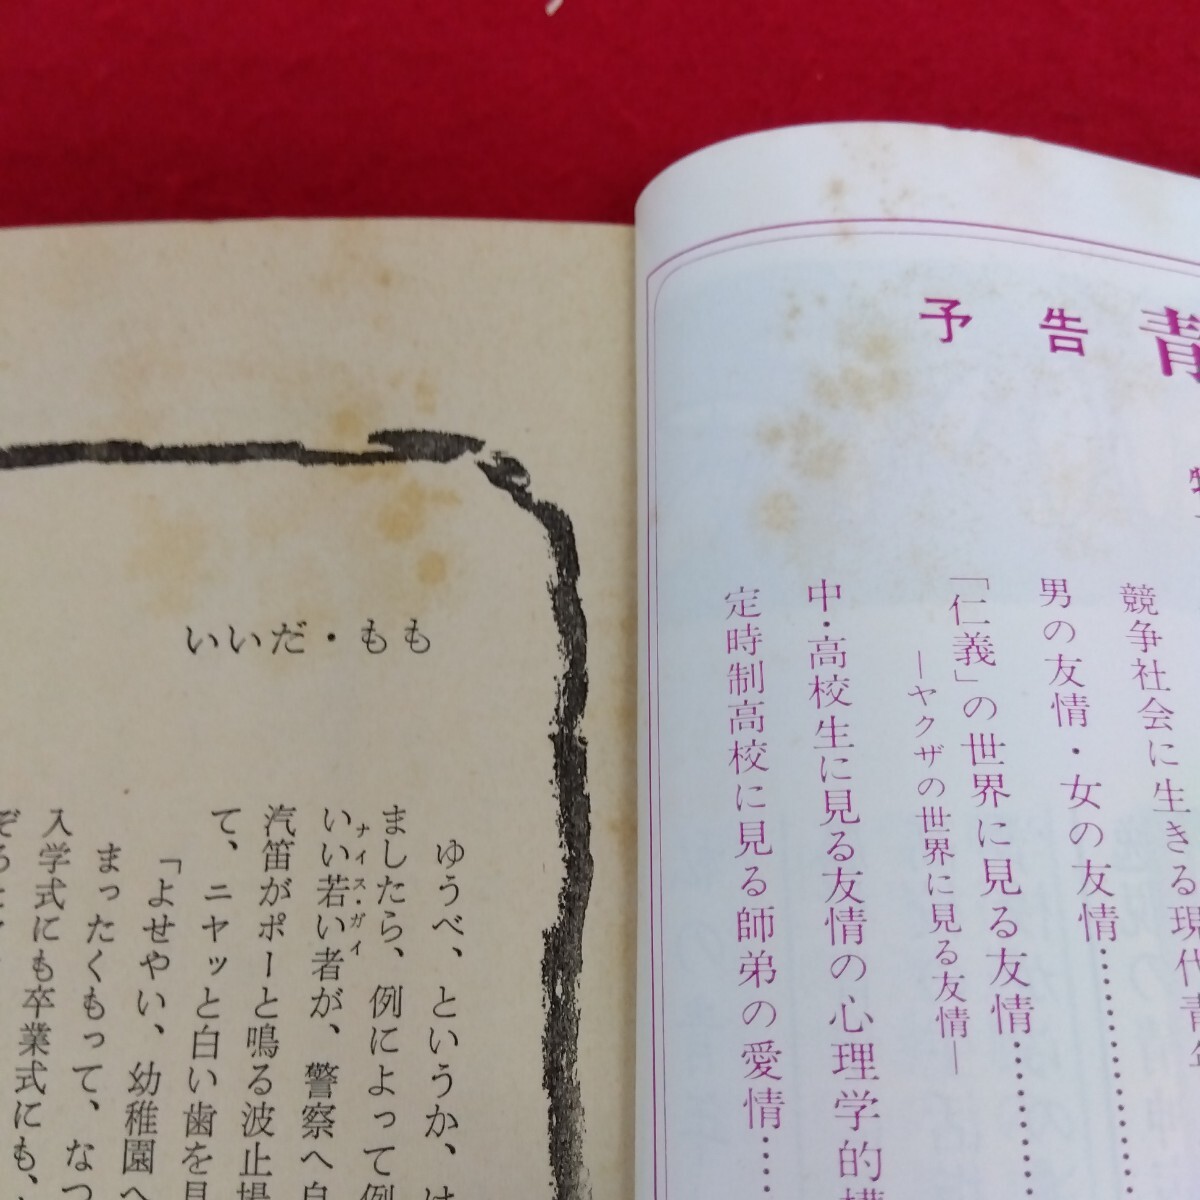 予告 青
競争社会に生きる現代青年
男の友情・女の友情……
「仁義」の世界に見る友情……
―ヤクザの世界に見る友情―
中・高校生に見る友情の心理学的構
定時制高校に見る師弟の愛情……
いいだ・もも
ゆうべ、というか、は
ましたら、例によって例
いい若い者が、警察へ自
ナイス・ガイ
汽笛がポーと鳴る波止場
て、ニヤッと白い歯を見
「よせやい、幼稚園へ
まったくもって、なつ
入学式にも卒業式にも、